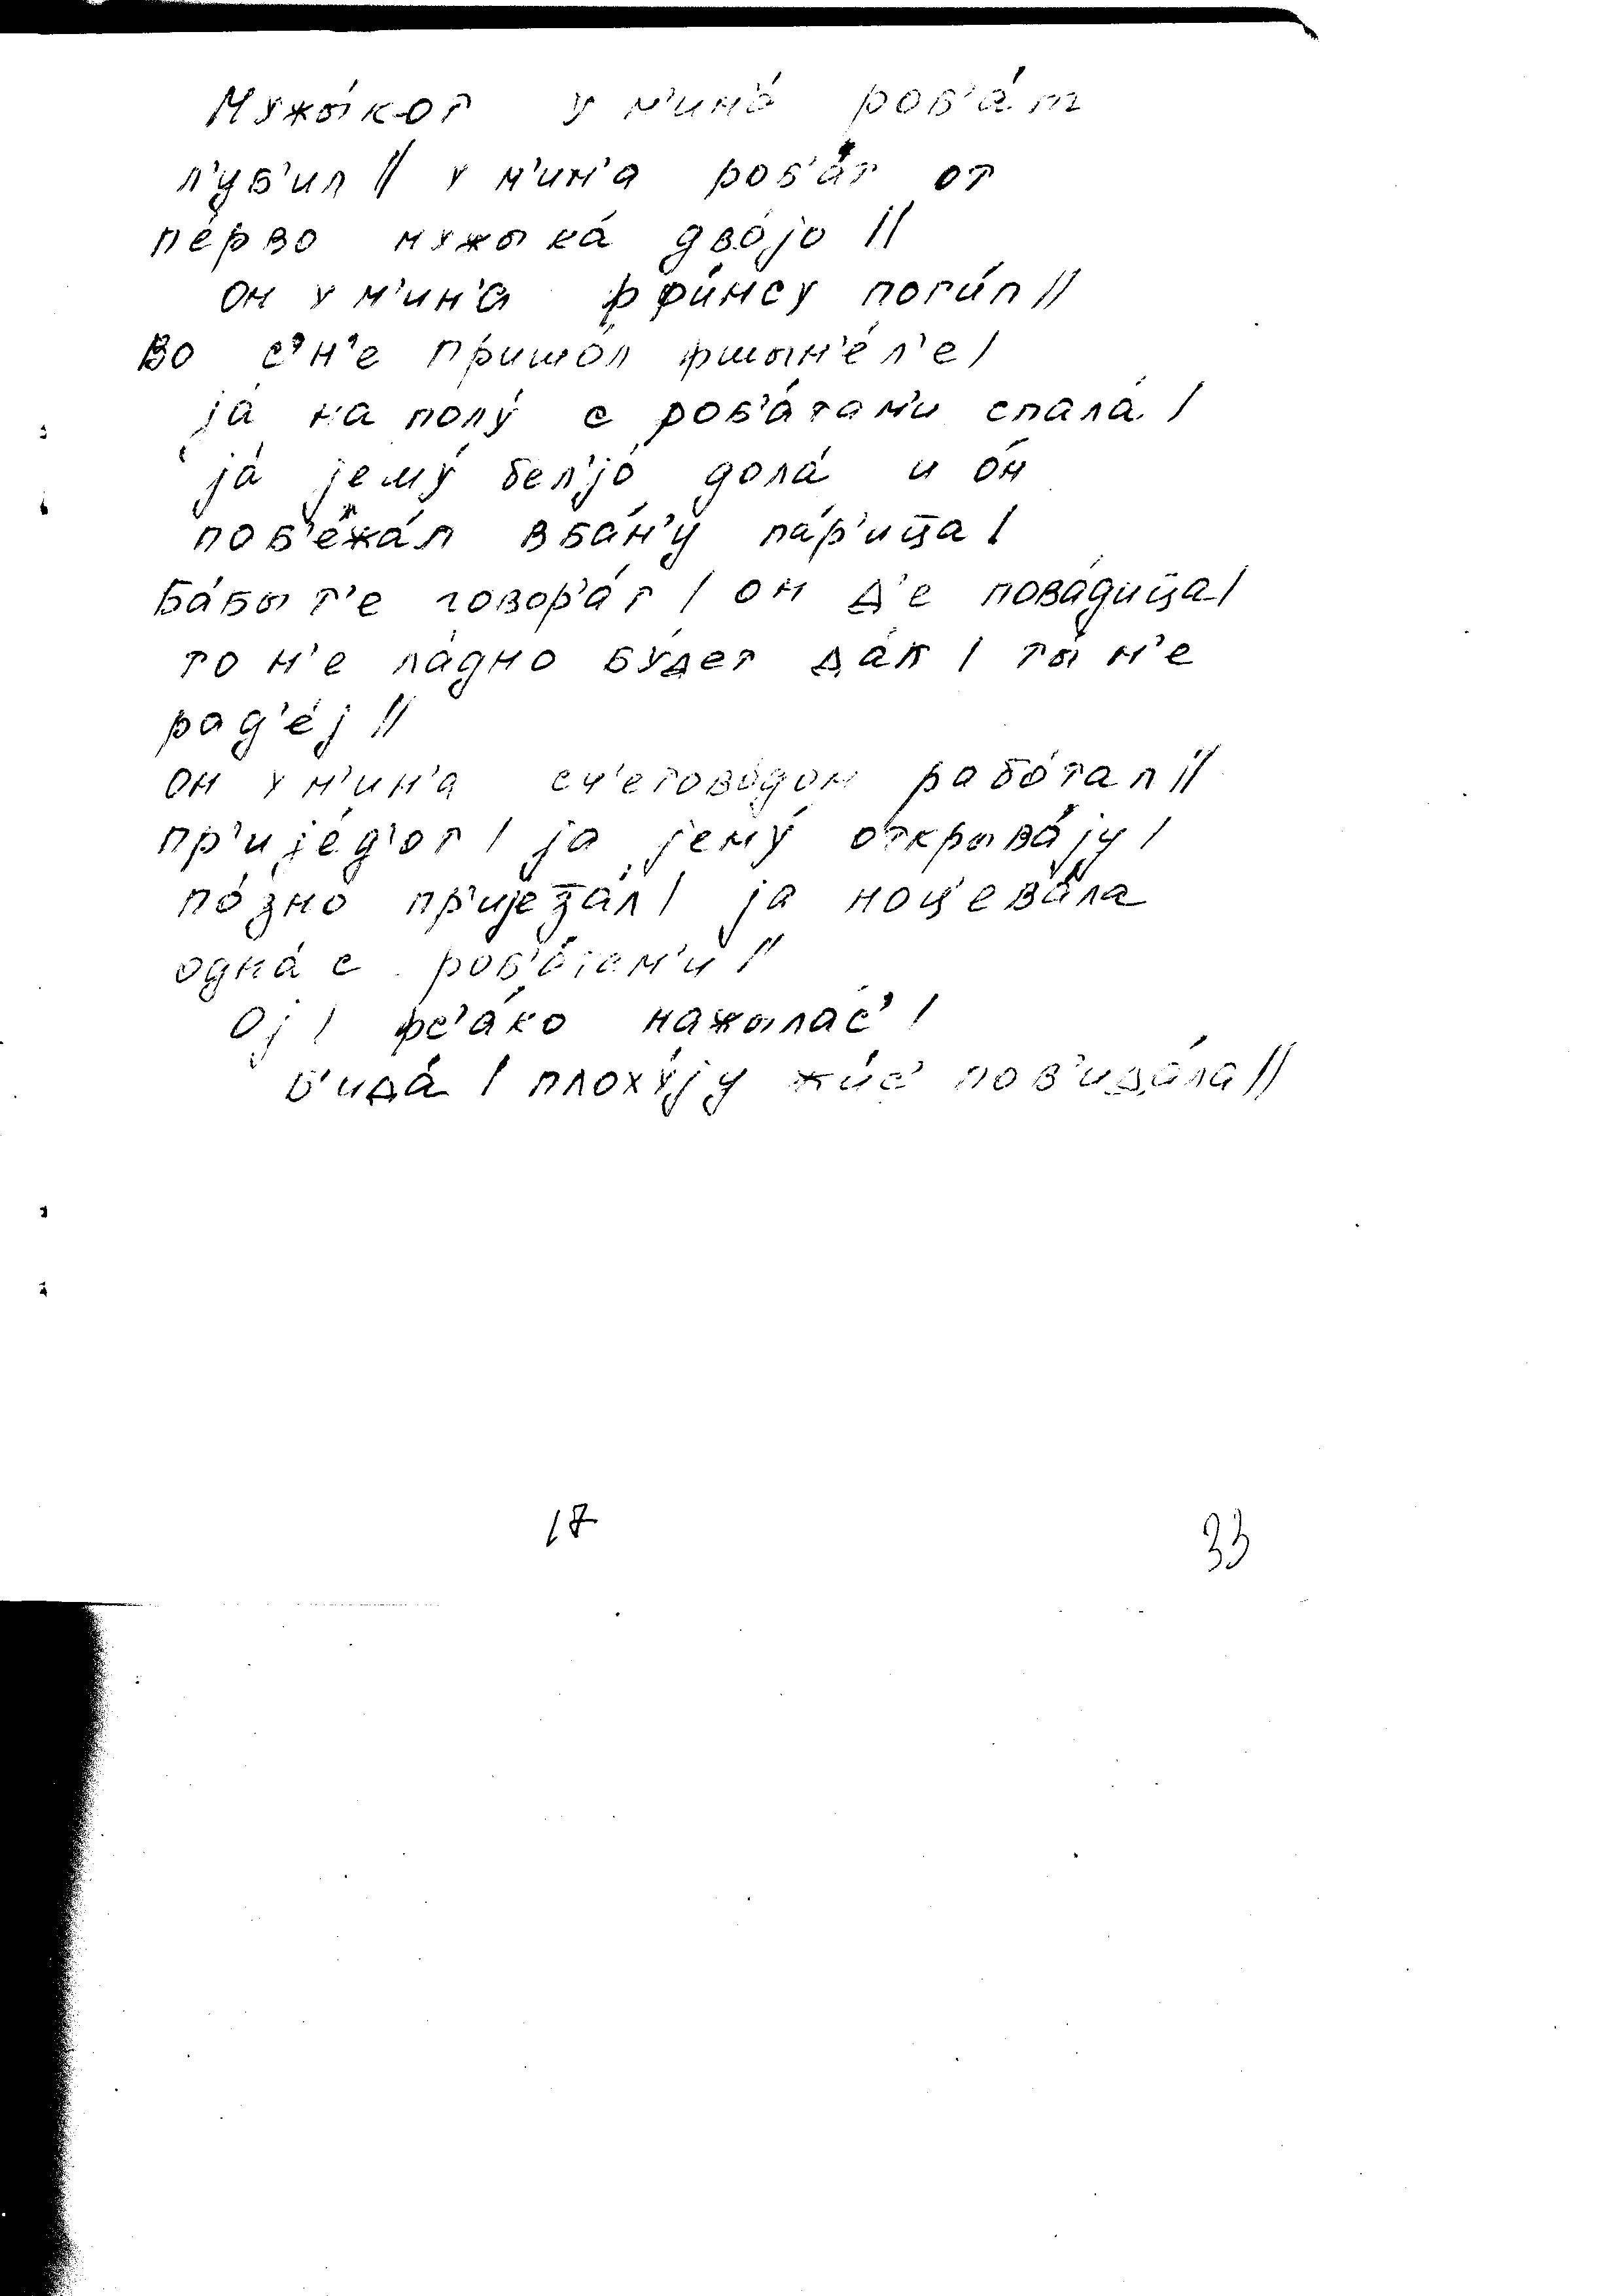 Мужы́кот у м'ина́ роб'а́т
л'уб'ил // у м'ин'а роб'а́т от
пе́рво мужыка́ дво́jо //
он у м'ин'а ффи́нсу поги́п //
Во с'н'е пришо́л фшын'е́л'е /
jа́ на полу́ с роб'а́там'и спала́ /
jа́ jему́ бел'jо́ дола́ и о́н
поб'ежа́л в ба́н'у па́р'ица /
Ба́бы т'е говор'а́т / он д'е пова́дица /
то н'е ла́дно бу́дет да́к / ты́ н'е
рад'е́j //
он у м'ин'а сч'етово́дом рабо́тал //
пр'иjе́д'от / jа jему́ открыва́jу /
по́зно пр'иjеза́л / jа ноц'ева́ла
одна́ с роб'а́там'и //
Оj / фс'а́ко нажылас' /
б'ида́ / плоху́jу жи́с' пов'ида́ла //
17
33